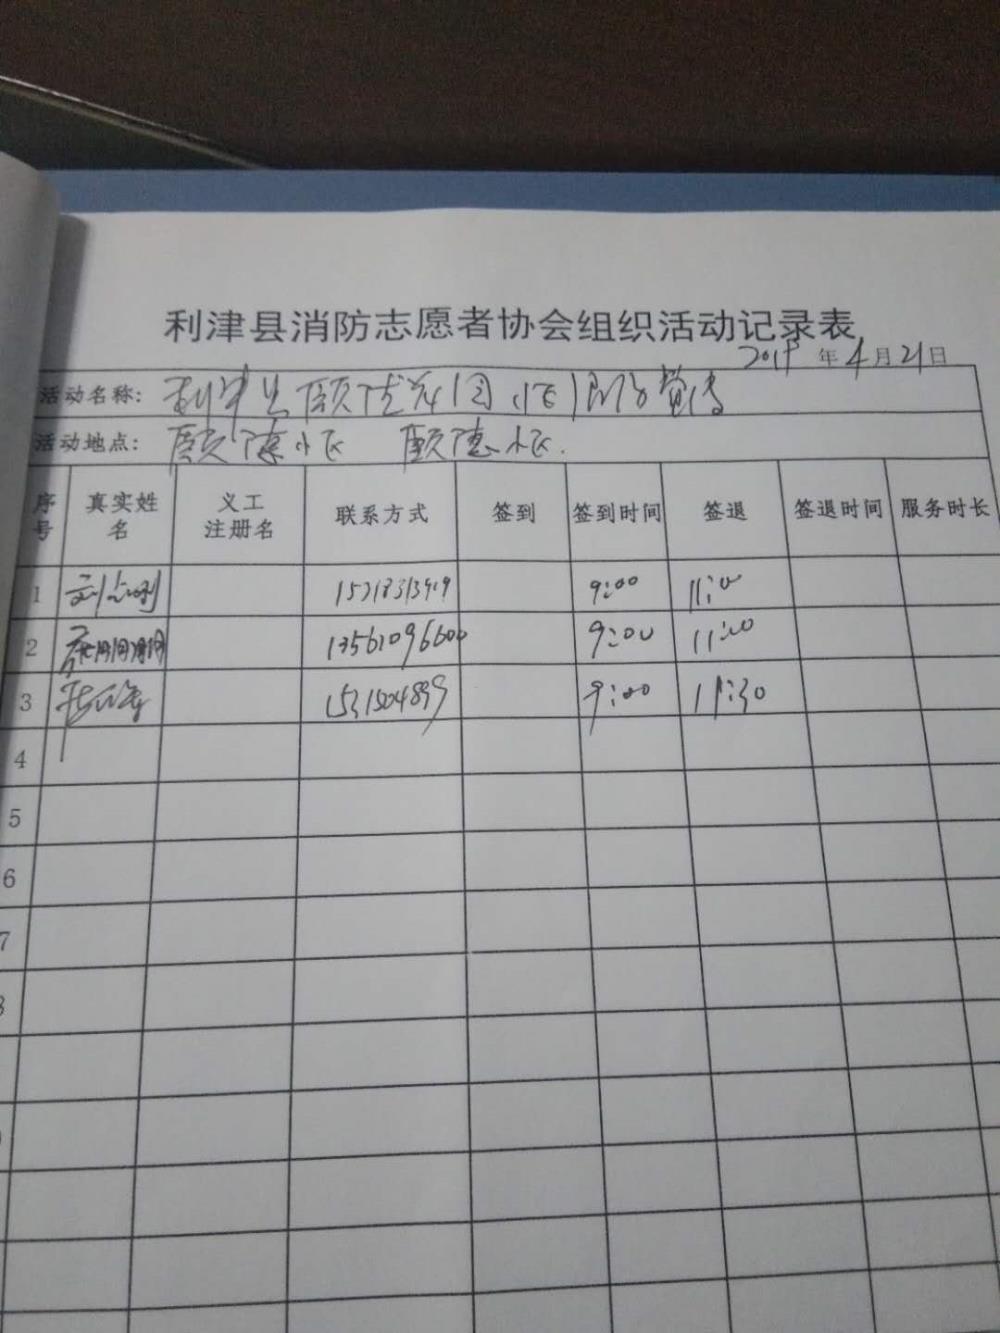 利津县消防志愿者协会组织活动记录表
年4月21日
活动名称: 利津县颐德花园小区消防宣传
活动地点: 颐德小区 颐德小区.
序号 真实姓名 义工注册名 联系方式 签到 签到时间 签退 签退时间 服务时长
1 9:00 11:00
2 13561096600 9:00 11:00
3 9:00 11:30
4
5
6
7